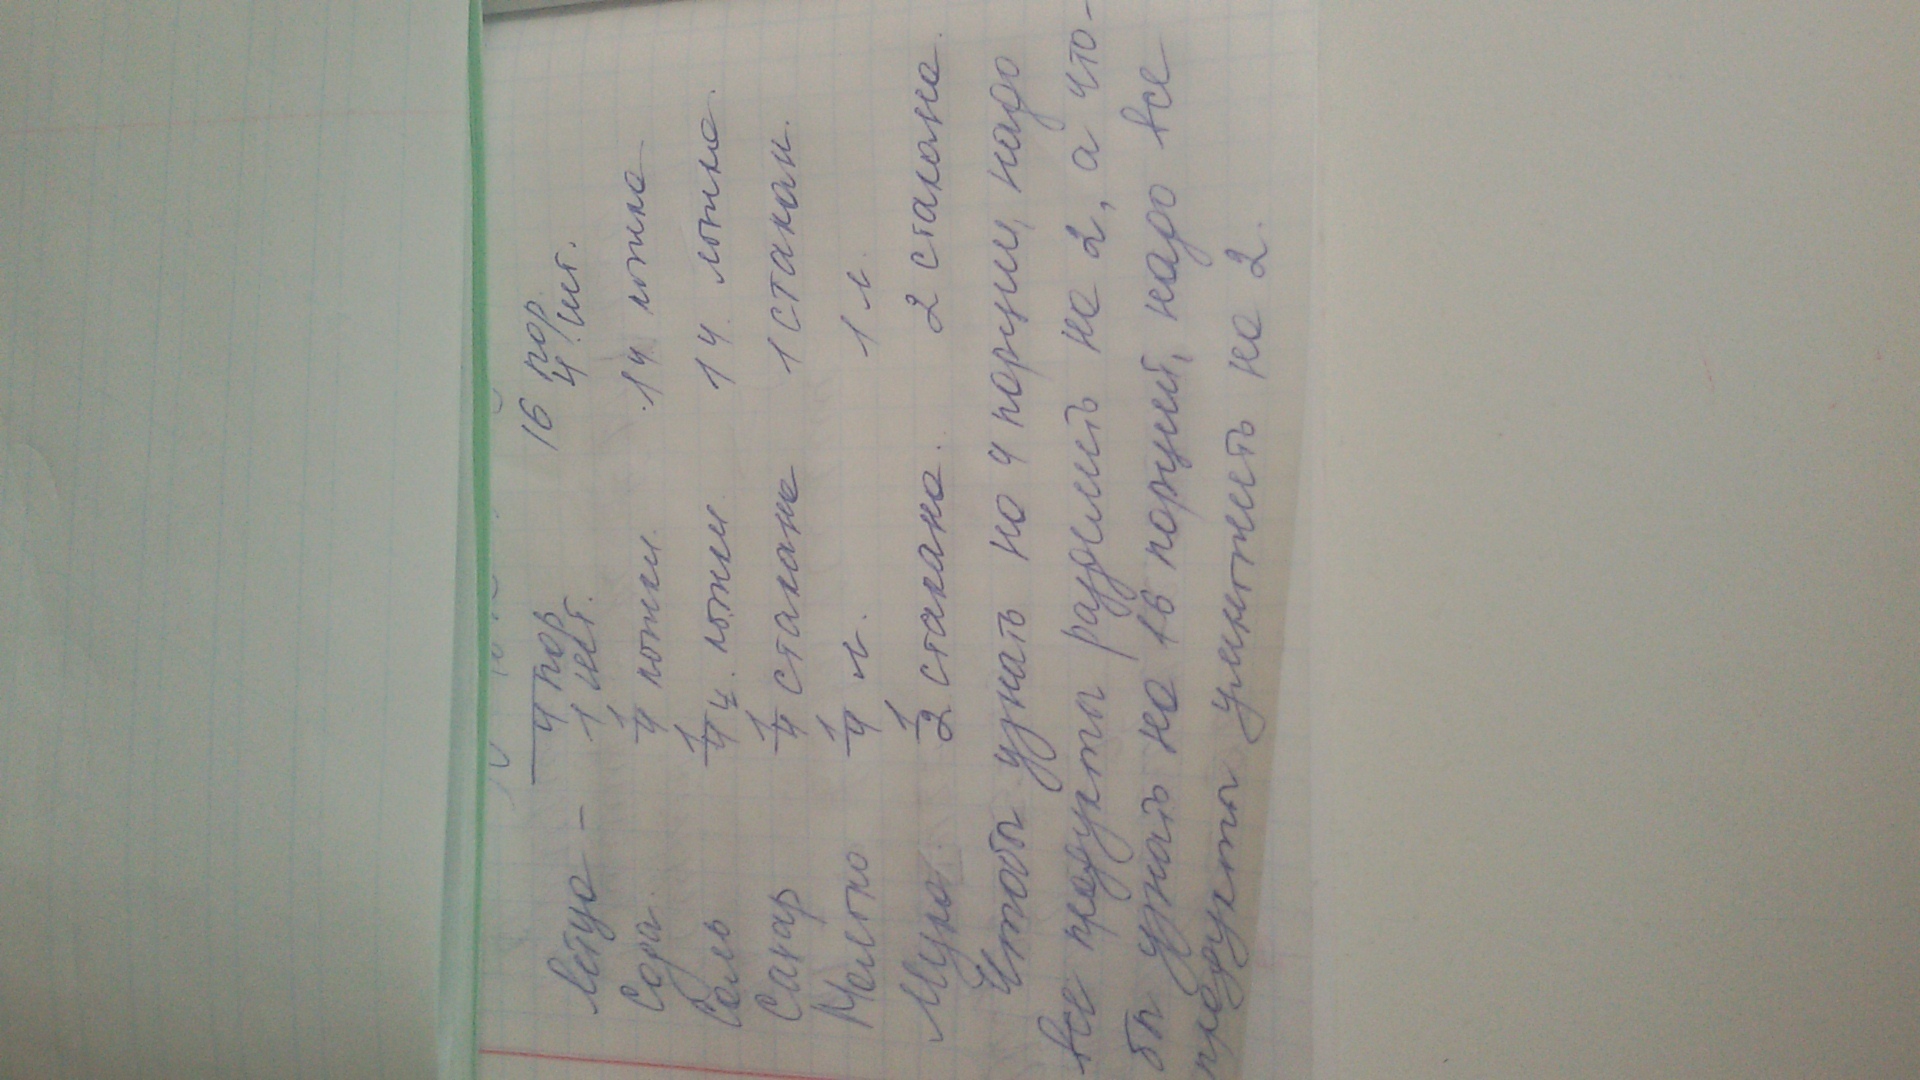 4 пор 16 пор
яйца – 1 шт. 4 шт.
Сода 1/4 ложки 1 ч ложка
Соль 1/4 ч. ложки 1 ч. ложка.
Сахар 1/4 стакана 1 стакан.
Молоко 1/4 л. 1 л.
Мука 1/2 стакана. 2 стакана.
Чтобы узнать на 4 порции, надо
все продукты разделить на 2, а что-
бы узнать на 16 порций, надо все
продукты умножить на 2.